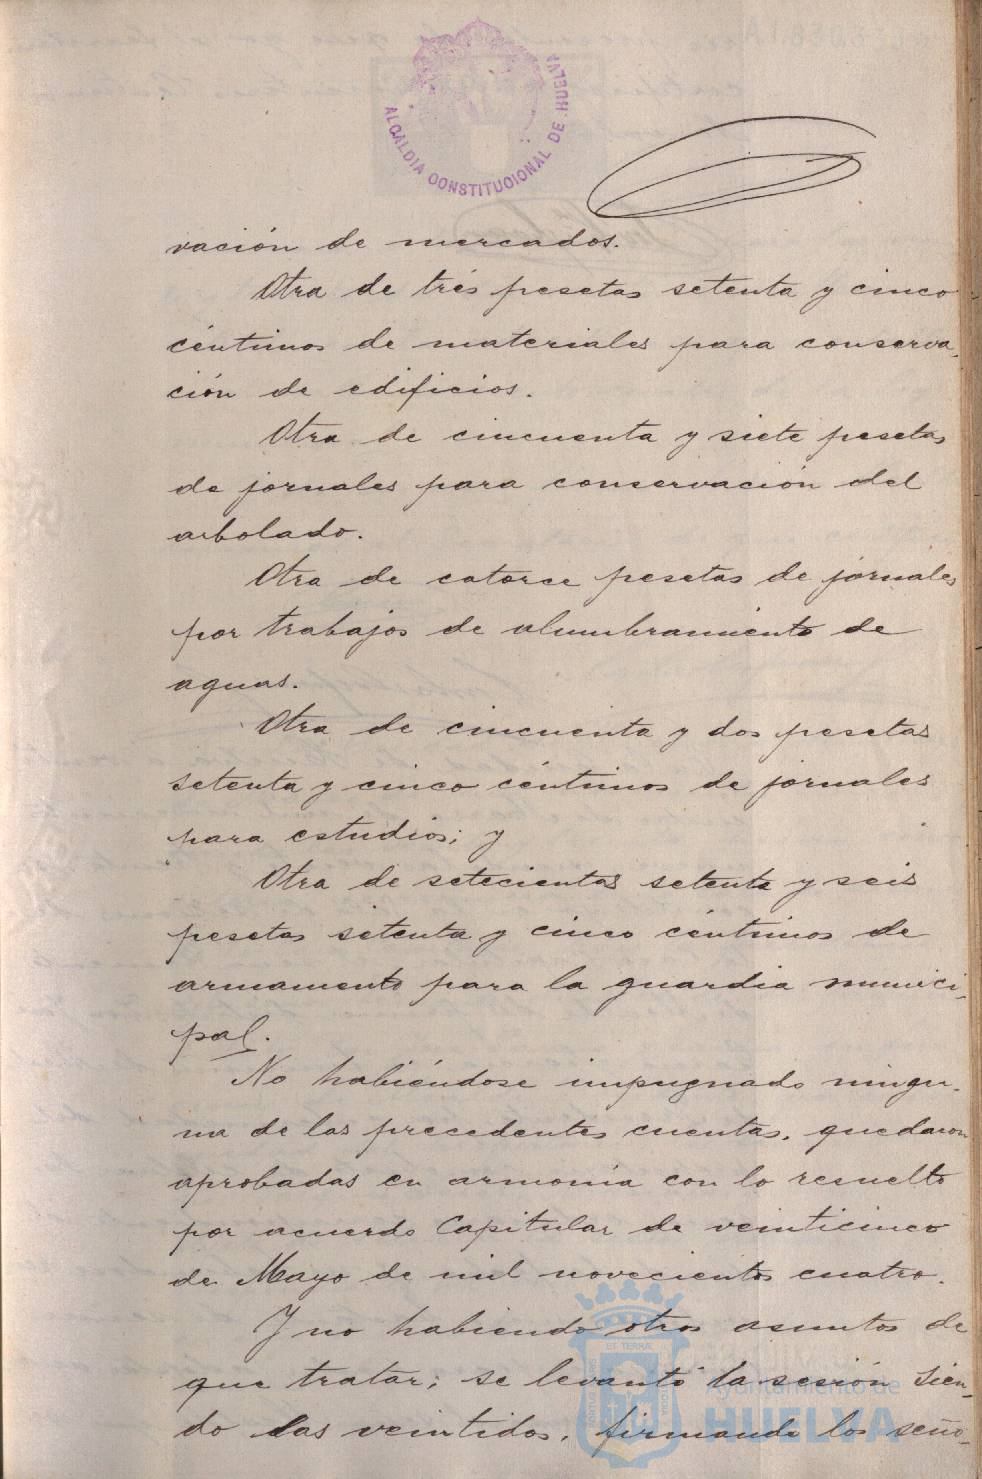 ALCALDIA CONSTITUCIONAL DE HUELVA
vación de mercados.
Otra de trés pesetas setenta y cinco
céntimos de materiales para conserva-
ción de edificios.
Otra de cincuenta y siete pesetas
de jornales para conservación del
arbolado.
Otra de catorce pesetas de jornales
por trabajos de alumbramiento de
aguas.
Otra de cincuenta y dos pesetas
setenta y cinco céntimos de jornales
para estudios; y
Otra de setecientas setenta y seis
pesetas setenta y cinco céntimos de
armamento para la guardia munici-
pal.
No habiéndose impugnado ningu-
na de las precedentes cuentas, quedaron
aprobadas en armonía con lo resuelto
por acuerdo Capitular de veinticinco
de Mayo de mil novecientos cuatro.
Y no habiendo otros asuntos de
que tratar; se levantó la sesión sien-
do las veintidos, firmando los seño-
Ayuntamiento de
HUELVA